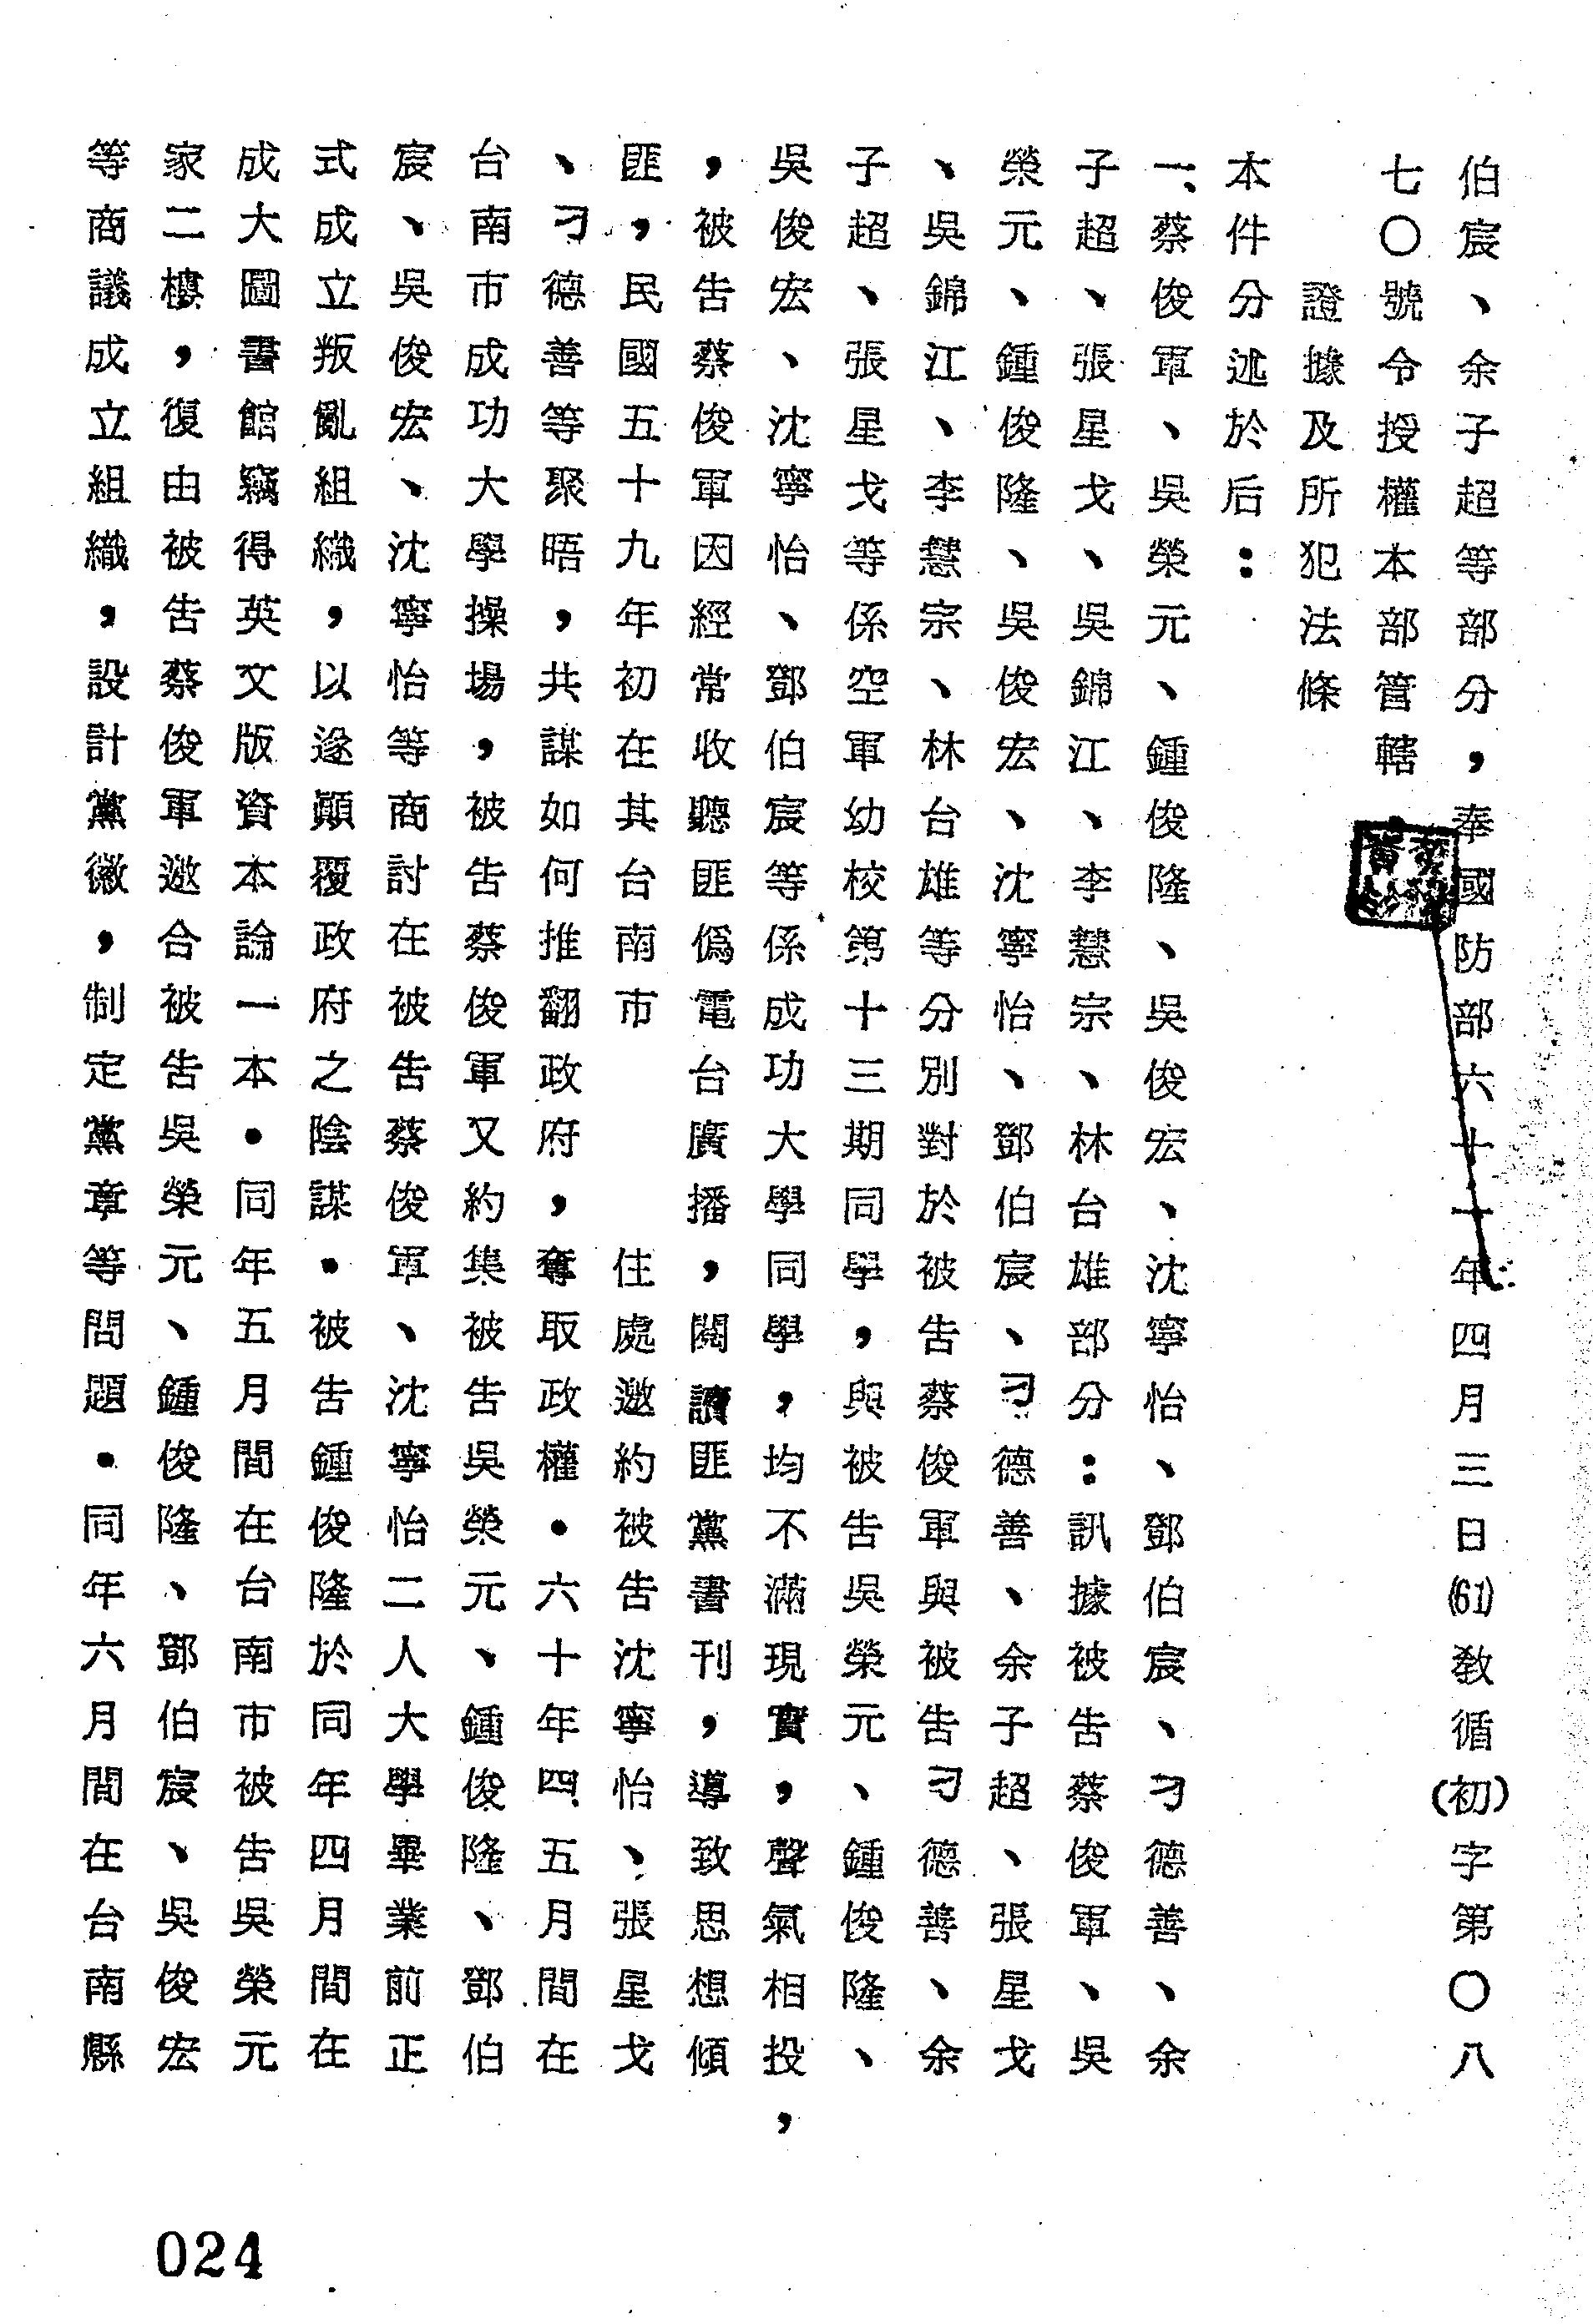 伯宸、余子超等部分，奉國防部六十一年四月三日(61)教循(初)字第〇八
七〇號令授權本部管轄．
證據及所犯法條
本件分述於后：
一、蔡俊軍、吳榮元、鍾俊隆、吳俊宏、沈寧怡、鄧伯宸、刁德善、余
子超、張星戈、吳錦江、李慧宗、林台雄部分：訊據被告蔡俊軍、吳
榮元、鍾俊隆、吳俊宏、沈寧怡、鄧伯宸、刁德善、余子超、張星戈
、吳錦江、李慧宗、林台雄等分別對於被告蔡俊軍與被告刁德善、余
子超、張星戈等係空軍幼校第十三期同學，與被告吳榮元、鍾俊隆、
吳俊宏、沈寧怡、鄧伯宸等係成功大學同學，均不滿現實，聲氣相投，
，被告蔡俊軍因經常收聽匪僞電台廣播，閱讀匪黨書刊，導致思想傾
匪，民國五十九年初在其台南市住處邀約被告沈寧怡、張星戈
、刁德善等聚晤，共謀如何推翻政府，奪取政權．六十年四、五月間在
台南市成功大學操場，被告蔡俊軍又約集被告吳榮元、鍾俊隆、鄧伯
宸、吳俊宏、沈寧怡等商討在被告蔡俊軍、沈寧怡二人大學畢業前正
式成立叛亂組織，以遂顚覆政府之陰謀．被告鍾俊隆於同年四月間在
成大圖書館竊得英文版資本論一本．同年五月間在台南市被告吳榮元
家二樓，復由被告蔡俊軍邀合被告吳榮元、鍾俊隆、鄧伯宸、吳俊宏
等商議成立組織，設計黨徽，制定黨章等問題．同年六月間在台南縣
024